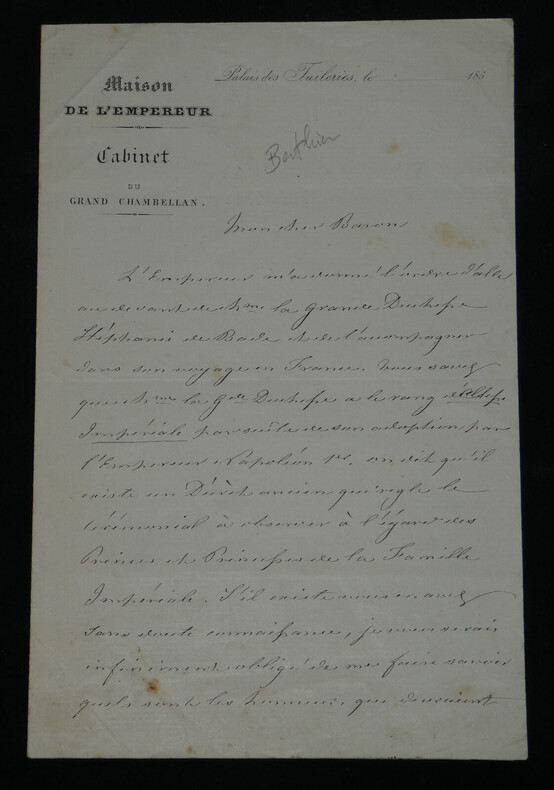 Maison
DE L'EMPEREUR
Palais des Tuileries, le 185
Cabinet
DU
GRAND CHAMBELLAN.
Berthier
Mon cher Baron
L'Empereur m'a donné l'ordre d'aller
au devant de Mme la Grande Duchesse
Stéphanie de Bade et de l'accompagner
dans son voyage en France. Vous savez
que Mme la Gde Duchesse a le rang d'Altesse
Impériale par suite de son adoption par
l'Empereur Napoléon 1er. on dit qu'il
existe un Décret ancien qui règle le
Cérémonial à observer à l'égard des
Princes et Princesses de la Famille
Impériale. S'il existe vous en avez
sans doute connaissance, je vous serais
infiniment obligé de me faire savoir
quels sont les honneurs qui devraient